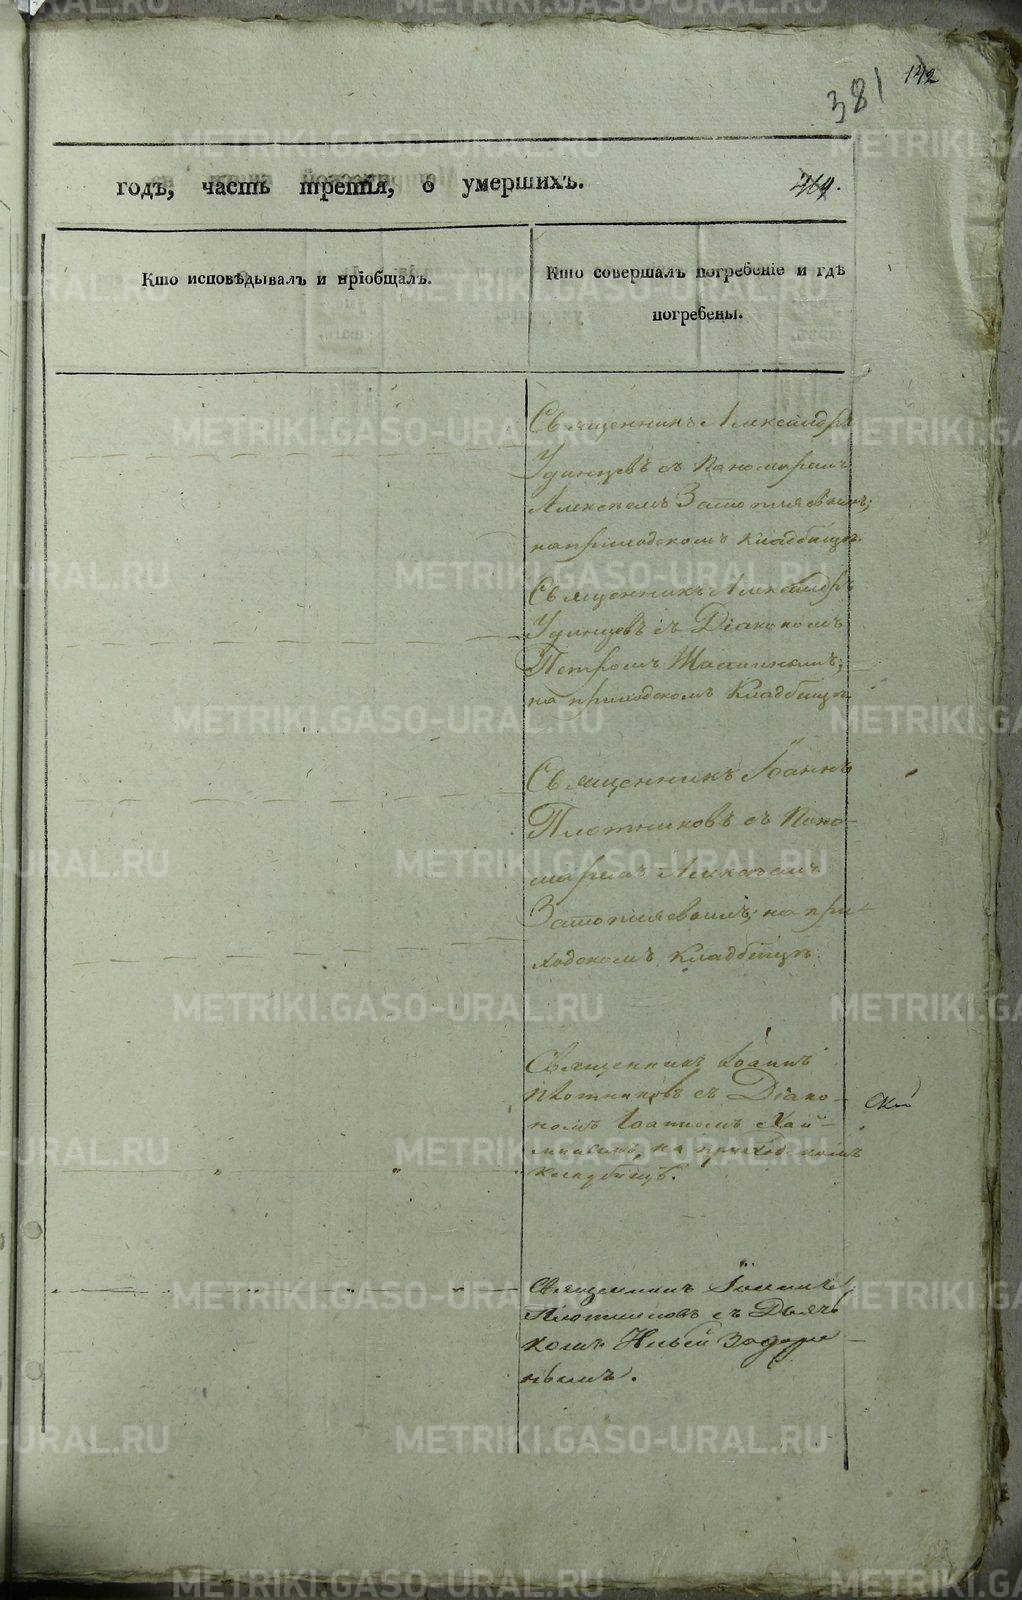 142
381
годъ, часть третія, о умершихъ.
469.
Кто исповѣдывалъ и пріобщалъ.
Кто совершалъ погребеніе и гдѣ
погребены.
Священникъ Александръ
Удинцевъ съ Пономаремъ
Алексѣемъ Затопляевымъ;
на приходскомъ кладбищѣ.
Священникъ Александръ
Удинцевъ съ Діакономъ
Петромъ
на приходскомъ Кладбищѣ
Священникъ Іоаннъ
Плотниковъ съ Поно-
маремъ Алексѣемъ
Затопляевымъ; на при-
ходскомъ кладбищѣ.
Священникъ Іоаннъ
Плотниковъ съ Діако-
номъ Іоанномъ
на приходскомъ
кладбищѣ.
Священникъ Іоаннъ
Плотниковъ съ Дьяч-
комъ Ильей
METRIKI.GASO-URAL.RU